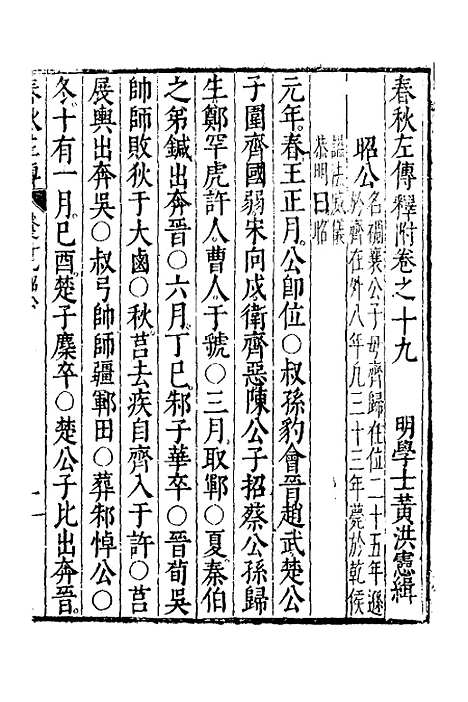 春秋左傳釋附卷之十九　　明學士黃洪憲緝
昭公
名稠襄公子母齊歸在位二十五年遜
於齊在外八年凡三十三年薨於乾侯
諡法威儀
恭明曰昭
元年春王正月公卽位○叔孫豹會晉趙武楚公
子圍齊國弱宋向戍衛齊惡陳公子招蔡公孫歸
生鄭罕虎許人曹人于虢○三月取鄆○夏秦伯
之弟鍼出奔晉○六月丁巳邾子華卒○晉荀吳
帥師敗狄于大鹵○秋莒去疾自齊入于許○莒
展輿出奔吳○叔弓帥師疆鄆田○葬邾悼公○
冬十有一月己酉楚子麇卒○楚公子比出奔晉